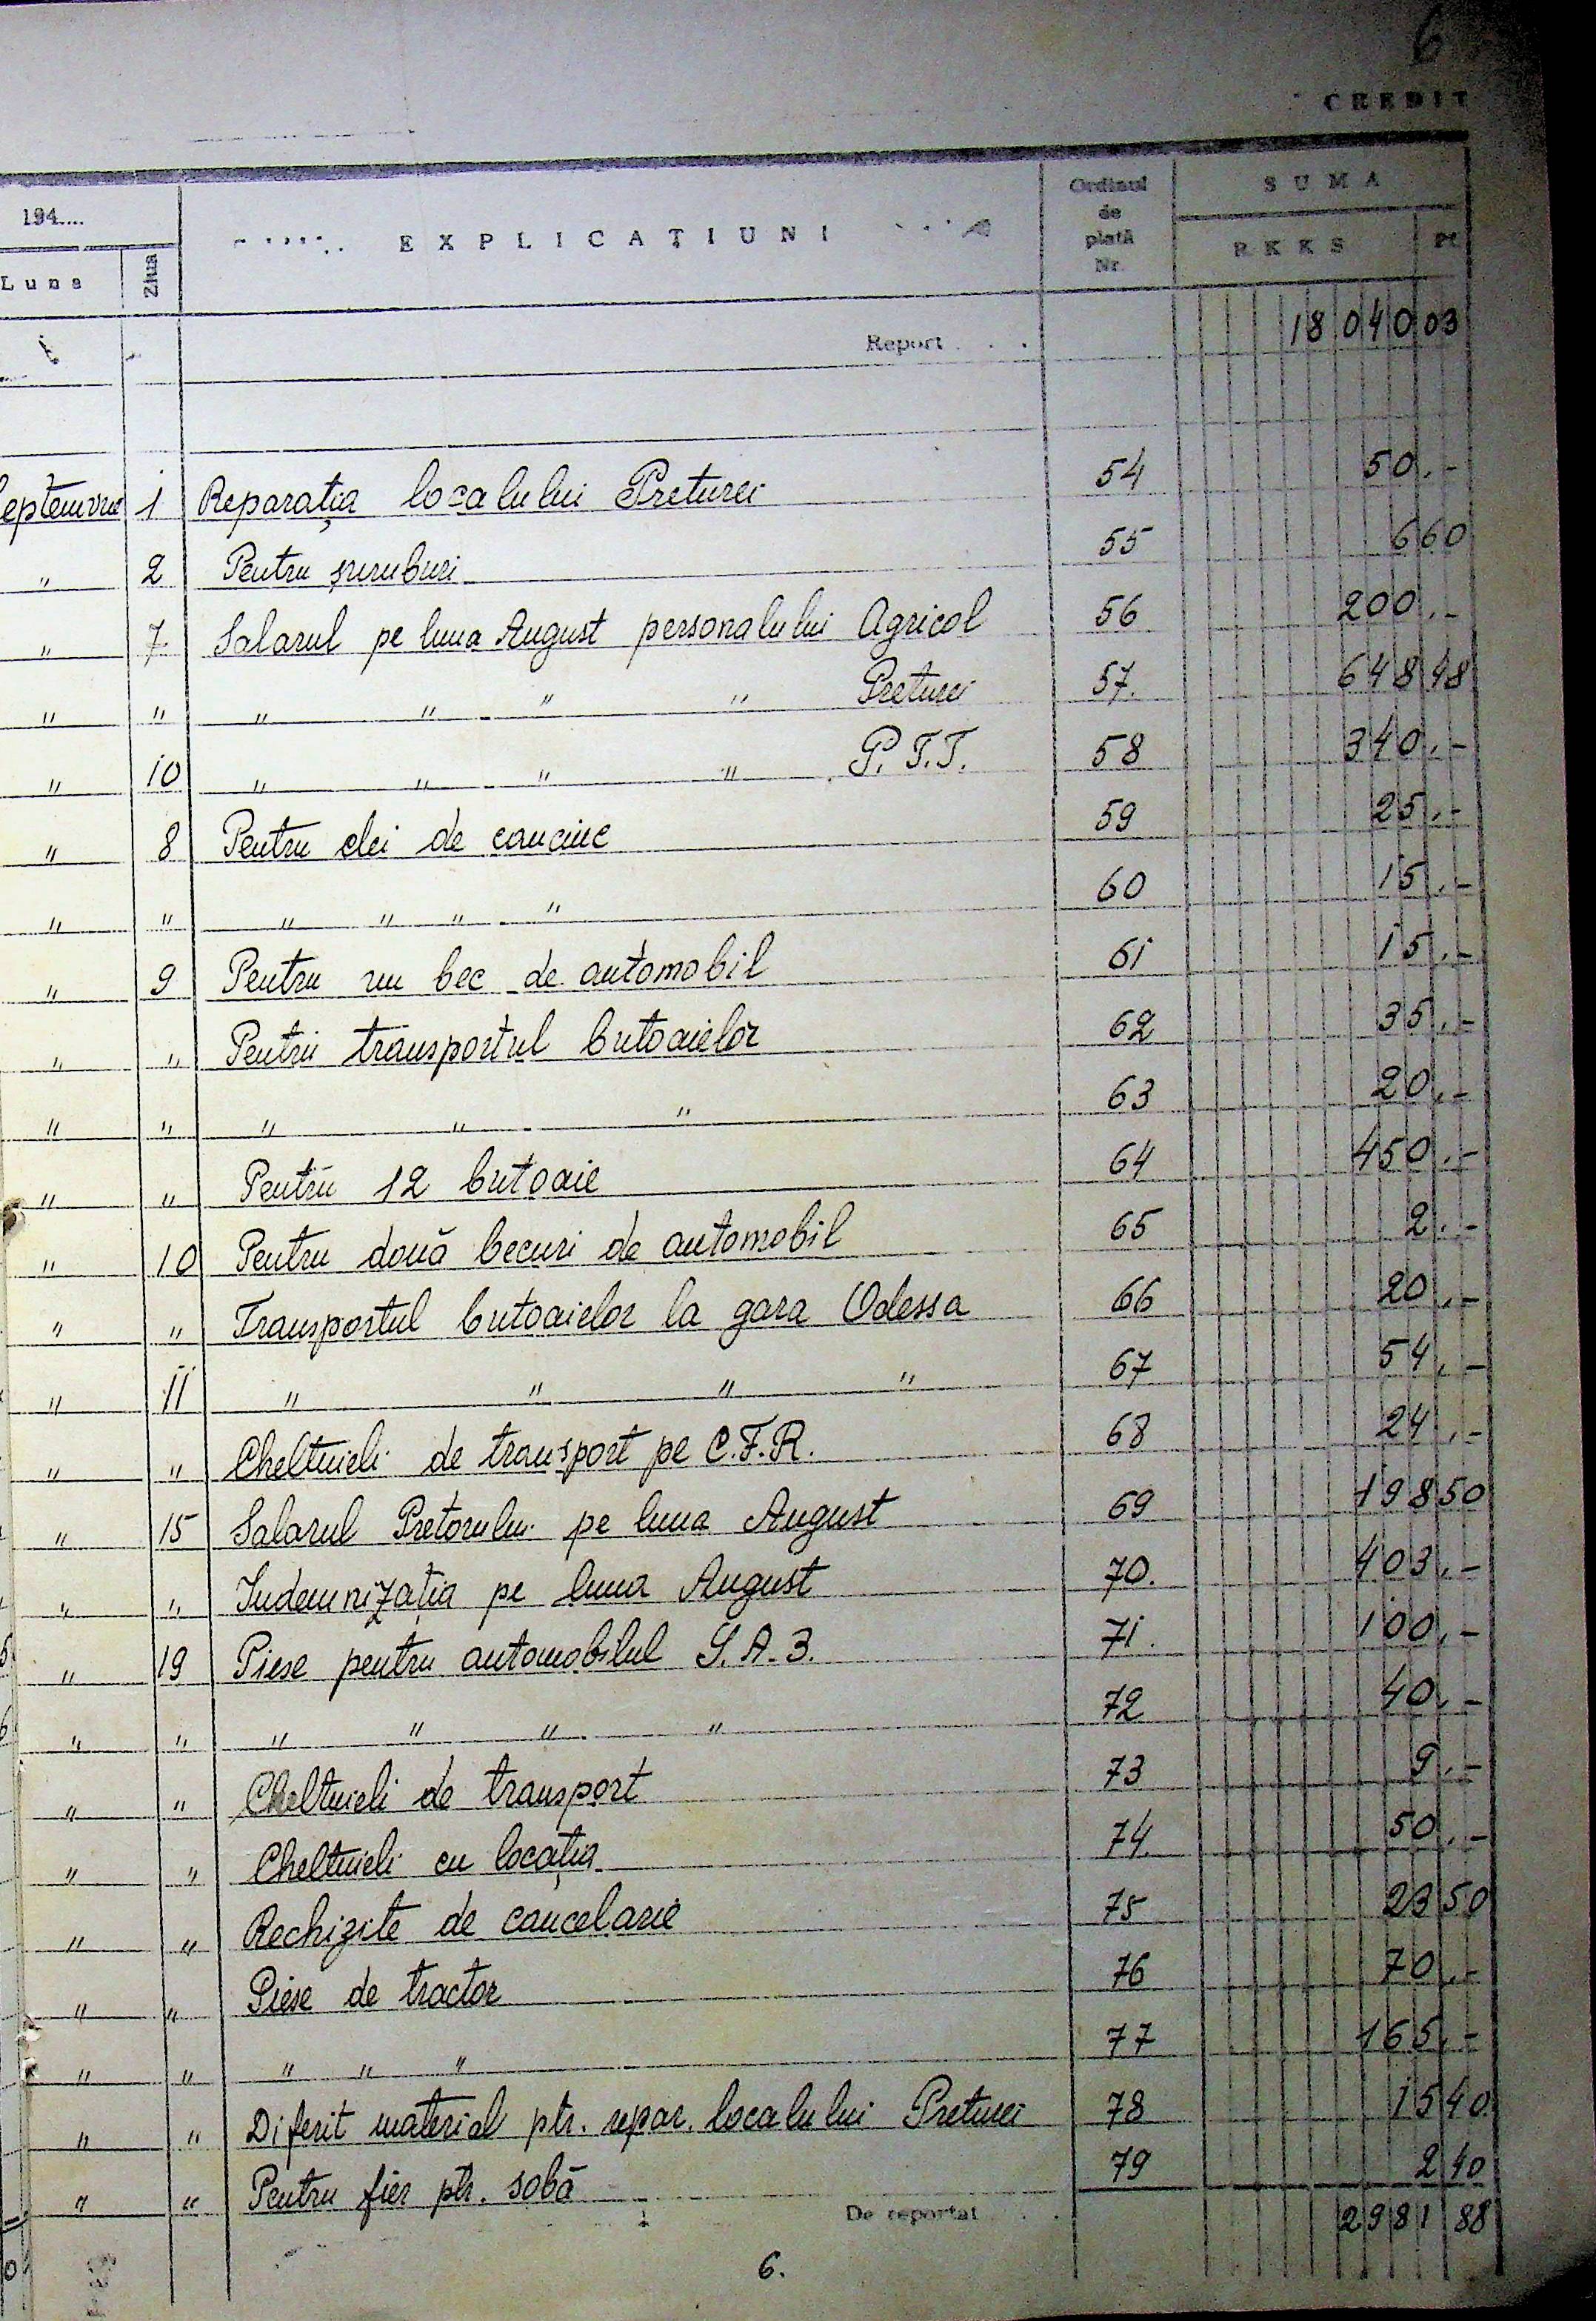 6
CREDIT
194.... EXPLICAȚIUNI Ordinul de plată Nr. SUMA
Luna Ziua RKKS Pf.
Report . . . 18 040 03
eptemvrie 1 Reparația localului Preturei 54 50.-
" 2 Pentru șuruburi 55 6 60
" 7. Salarul pe luna August personalului Agricol 56 200.-
" " " " " " Preturei 57. 648 48
" 10 " " " " P.T.T. 58 340.-
" 8 Pentru clei de cauciuc 59 25.-
" " " " " " 60 15.-
" 9 Pentru un bec de automobil 61 15.-
" " Pentru transportul butoaielor 62 35.-
" " " " " 63 20.-
" " Pentru 12 butoaie 64 450.-
" 10 Pentru două becuri de automobil 65 2.-
" " Transportul butoaielor la gara Odessa 66 20.-
" 11 " " " " 67 54.-
" " Cheltuieli de transport pe C.F.R. 68 24.-
" 15 Salarul Pretorului pe luna August 69 198 50
" " Indemnizația pe luna August 70. 403.-
" 19 Piese pentru automobilul S.A.3. 71. 100.-
" " " " " " 72 40.-
" " Cheltuieli de transport 73 9.-
" " Cheltuieli cu locația 74. 50.-
" " Rechizite de cancelarie 75 23 50
" " Piese de tractor 76 70.-
" " " " " 77 165.-
" " Diferit material ptr. repar. localului Preturei 78 15 40
" " Pentru fier ptr. sobă 79 2 40
De reportat . . . 2981 88
6.